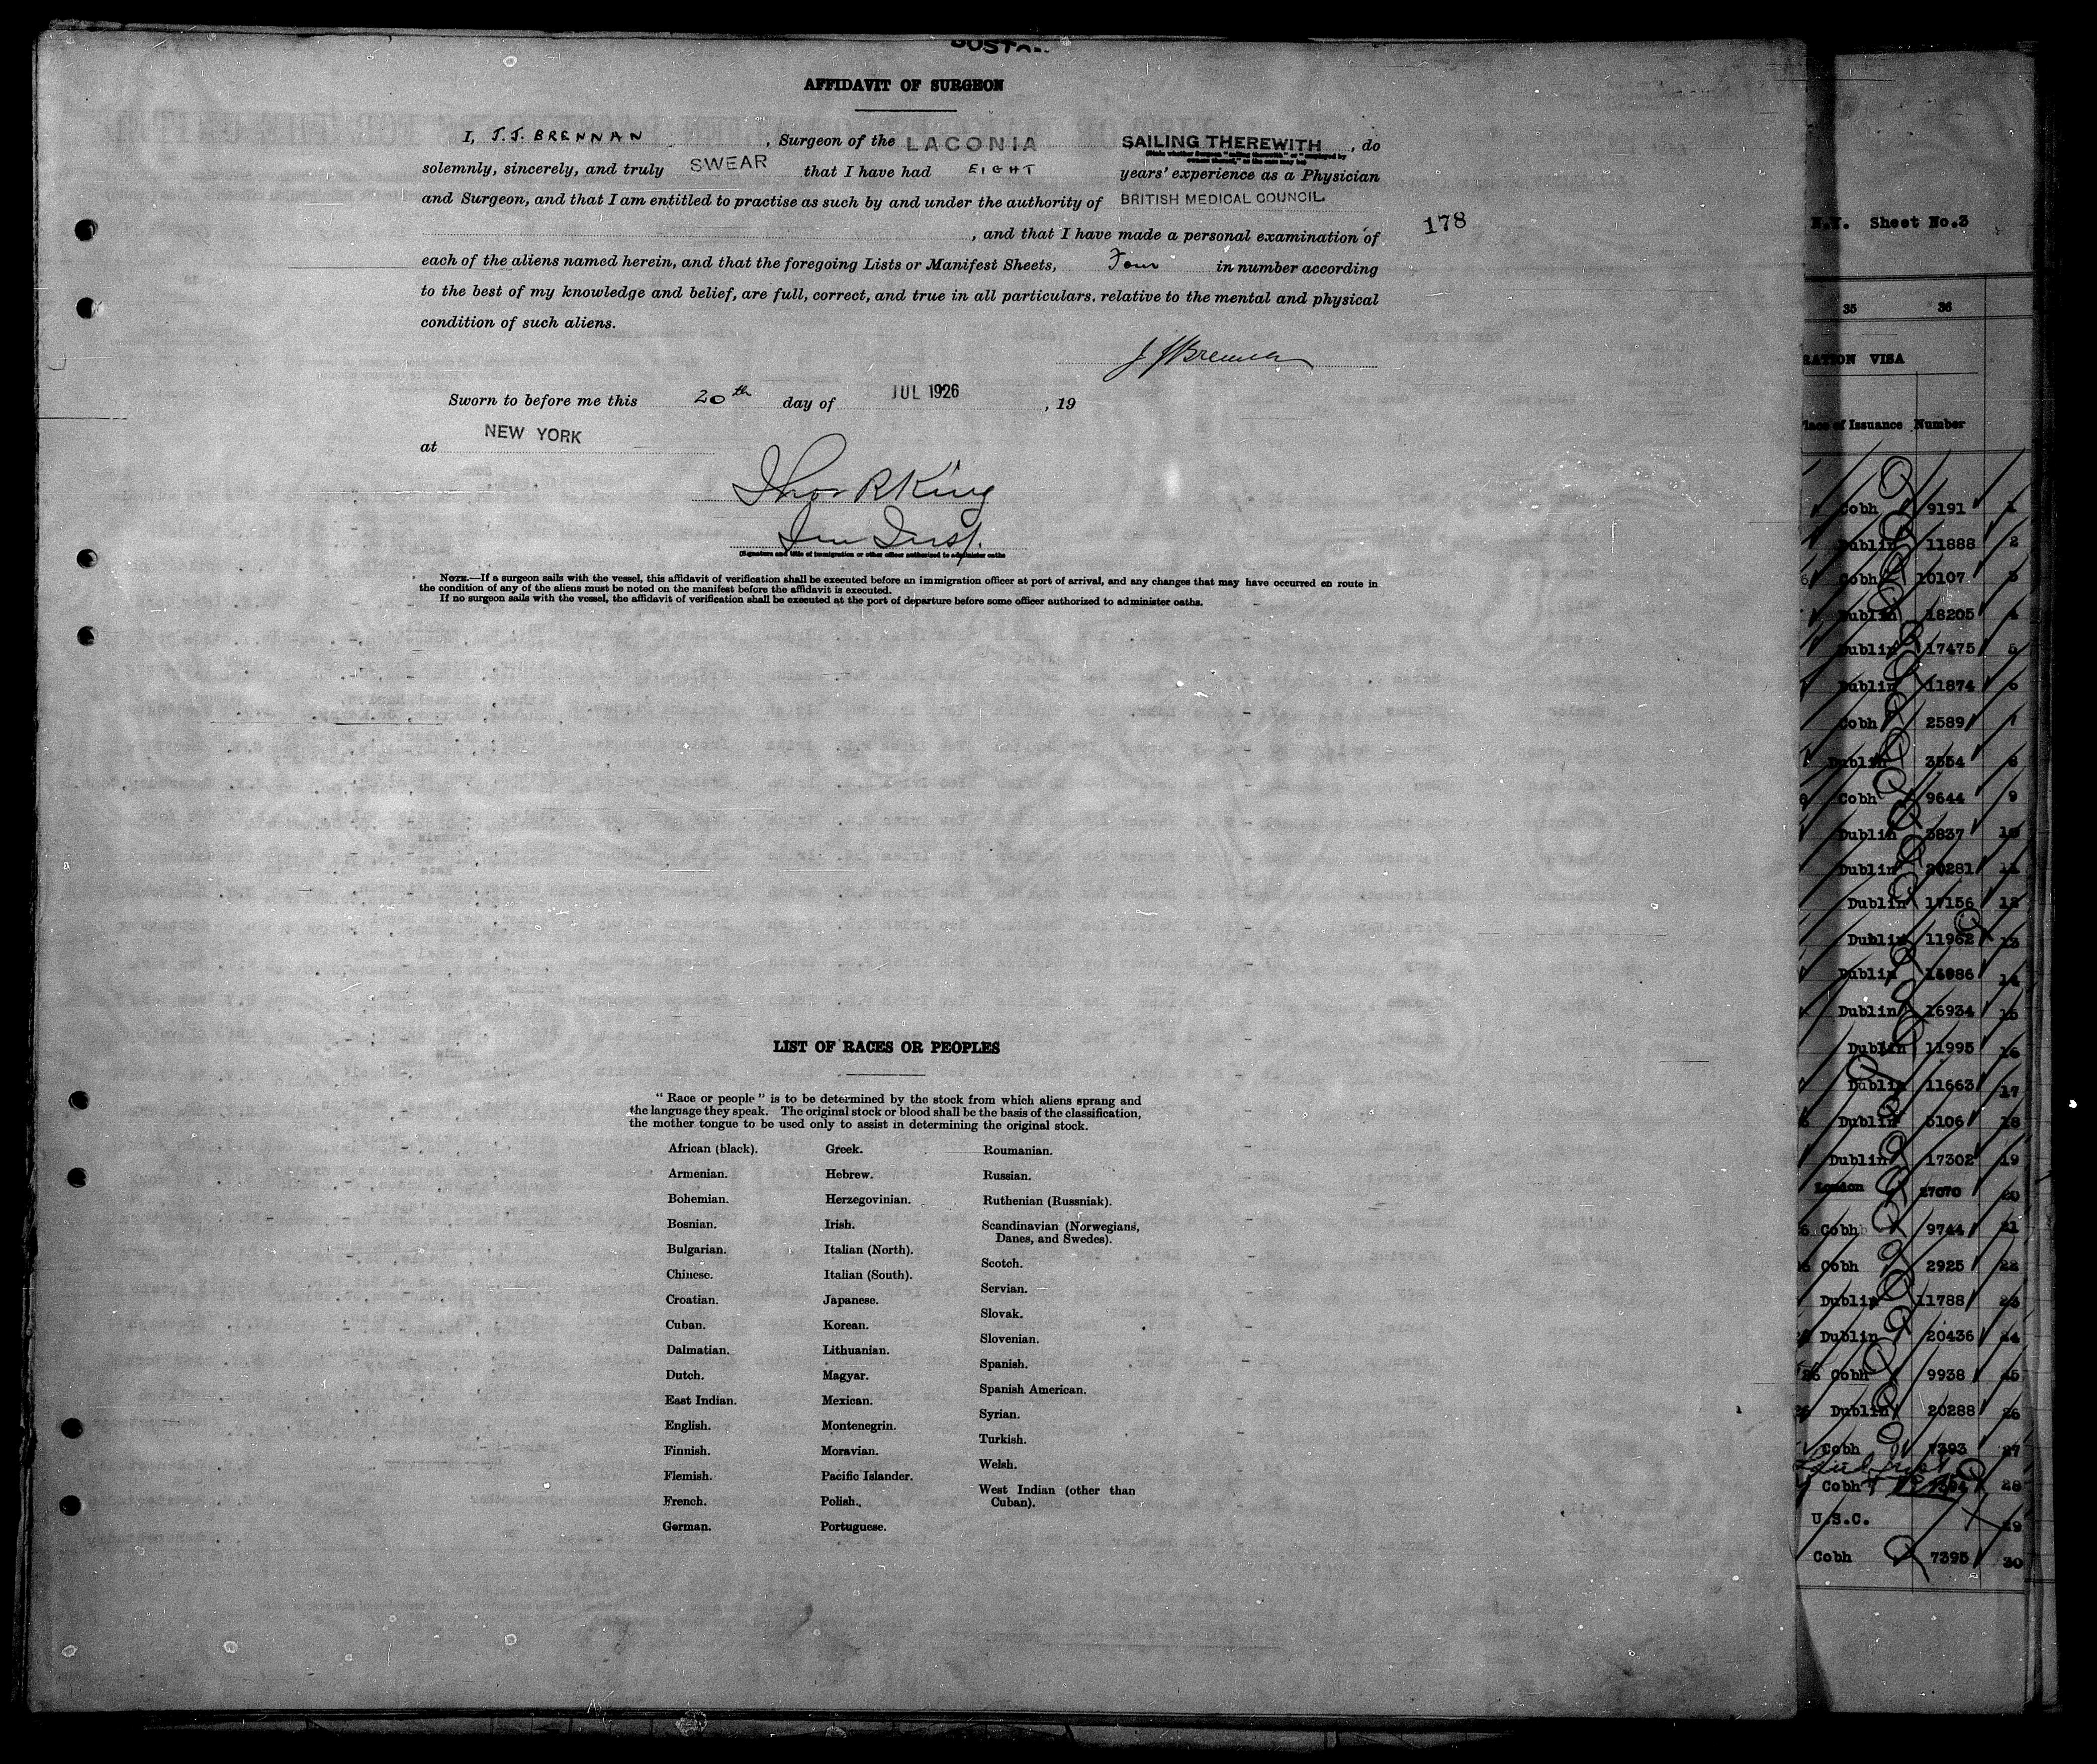 AFFIDAVIT OF SURGEON
I, J.J. BRENNAN , Surgeon of the LACONIA SAILING THEREWITH , do
(State whether Surgeon "sailing therewith" or "employed by owners thereof," as the case may be)
solemnly, sincerely, and truly SWEAR that I have had EIGHT years' experience as a Physician
and Surgeon, and that I am entitled to practise as such by and under the authority of BRITISH MEDICAL COUNCIL.
, and that I have made a personal examination of
178
each of the aliens named herein, and that the foregoing Lists or Manifest Sheets, Four in number according
to the best of my knowledge and belief, are full, correct, and true in all particulars. relative to the mental and physical
condition of such aliens.
J J Brennan
Sworn to before me this 20th day of JUL 1926 , 19
at NEW YORK
Thos R King
Imm Insp.
(Signature and title of immigration or other officer authorized to administer oaths
NOTE.—If a surgeon sails with the vessel, this affidavit of verification shall be executed before an immigration officer at port of arrival, and any changes that may have occurred en route in
the condition of any of the aliens must be noted on the manifest before the affidavit is executed.
If no surgeon sails with the vessel, the affidavit of verification shall be executed at the port of departure before some officer authorized to administer oaths.
LIST OF RACES OR PEOPLES
"Race or people" is to be determined by the stock from which aliens sprang and
the language they speak. The original stock or blood shall be the basis of the classification,
the mother tongue to be used only to assist in determining the original stock.
African (black).
Armenian.
Bohemian.
Bosnian.
Bulgarian.
Chinese.
Croatian.
Cuban.
Dalmatian.
Dutch.
East Indian.
English.
Finnish.
Flemish.
French.
German.
Greek.
Hebrew.
Herzegovinian.
Irish.
Italian (North).
Italian (South).
Japanese.
Korean.
Lithuanian.
Magyar.
Mexican.
Montenegrin.
Moravian.
Pacific Islander.
Polish.
Portuguese.
Roumanian.
Russian.
Ruthenian (Russniak).
Scandinavian (Norwegians,
Danes, and Swedes).
Scotch.
Servian.
Slovak.
Slovenian.
Spanish.
Spanish American.
Syrian.
Turkish.
Welsh.
West Indian (other than
Cuban).
N.Y. Sheet No.3
35 36
VISA
of Issuance Number
Cobh 9191 1
Dublin 11888 2
Cobh 10107 3
Dublin 18205 4
Dublin 17475 5
Dublin 11874 6
Cobh 2589 7
Dublin 3554 8
Cobh 9644 9
Dublin 3837 10
Dublin 20281 11
Dublin 17156 12
Dublin 11962 13
Dublin 14
Dublin 16934 15
Dublin 11995 16
Dublin 11663 17
Dublin 5106 18
Dublin 17302 19
London 27070 20
Cobh 9744 21
Cobh 2925 22
Dublin 11788 23
Dublin 20436 24
Cobh 9938 25
Dublin 20288 26
Cobh 7393 27
Cobh 28
U.S.C. 29
Cobh 7395 30